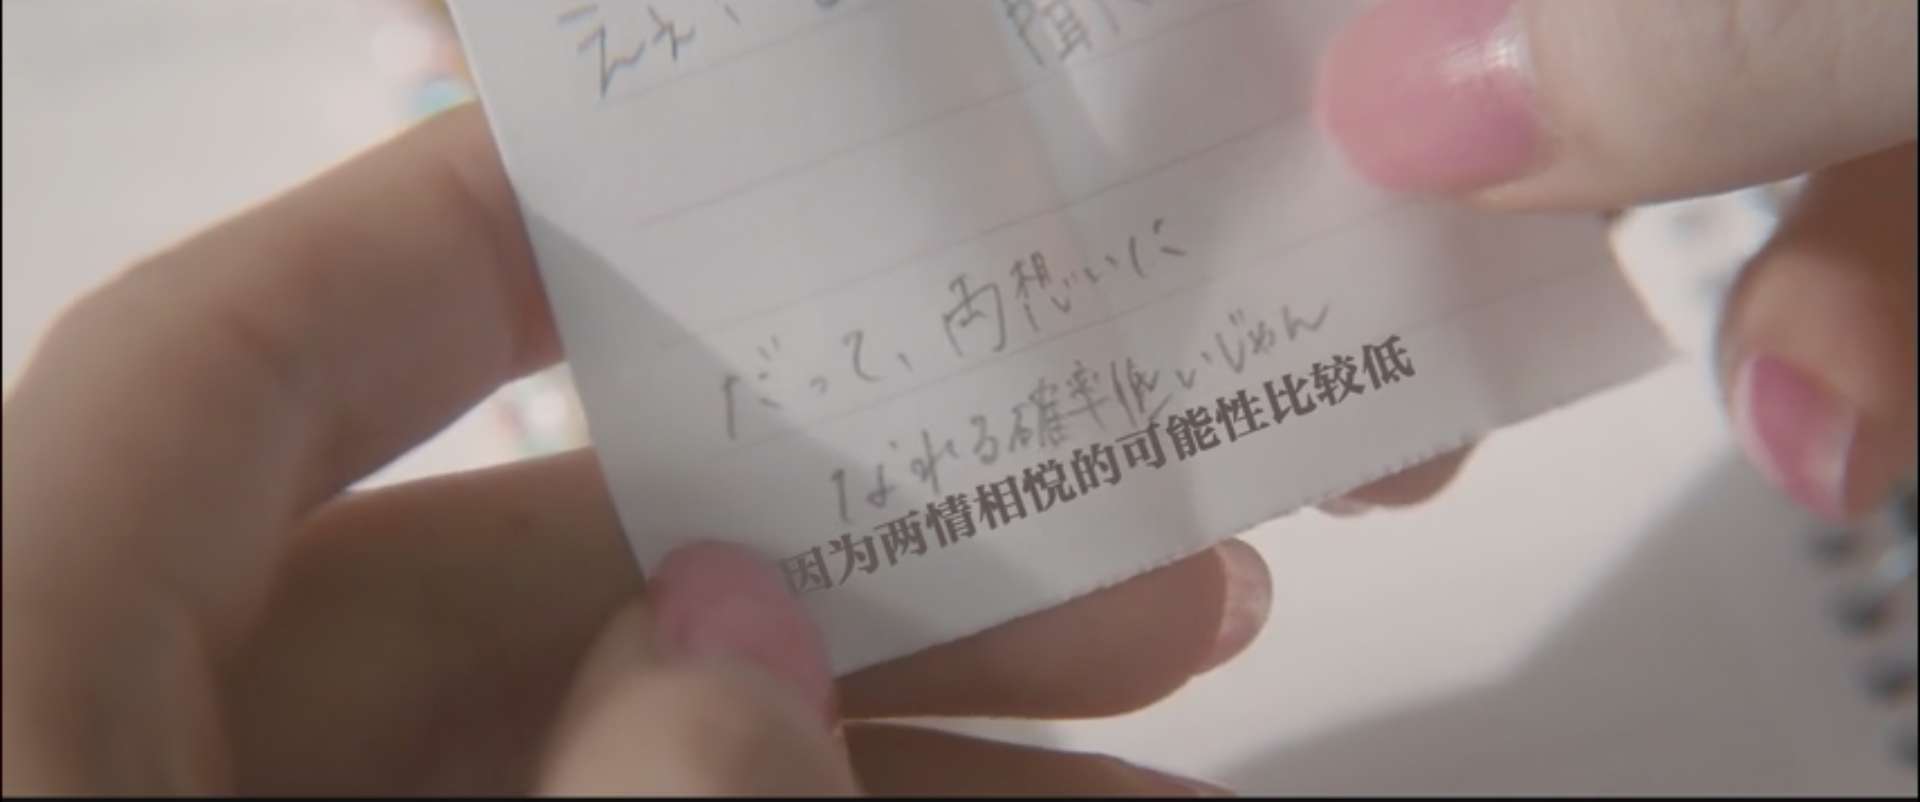 ええ、
聞
だって、両想いに
なれる確率低いじゃん
因为两情相悦的可能性比较低